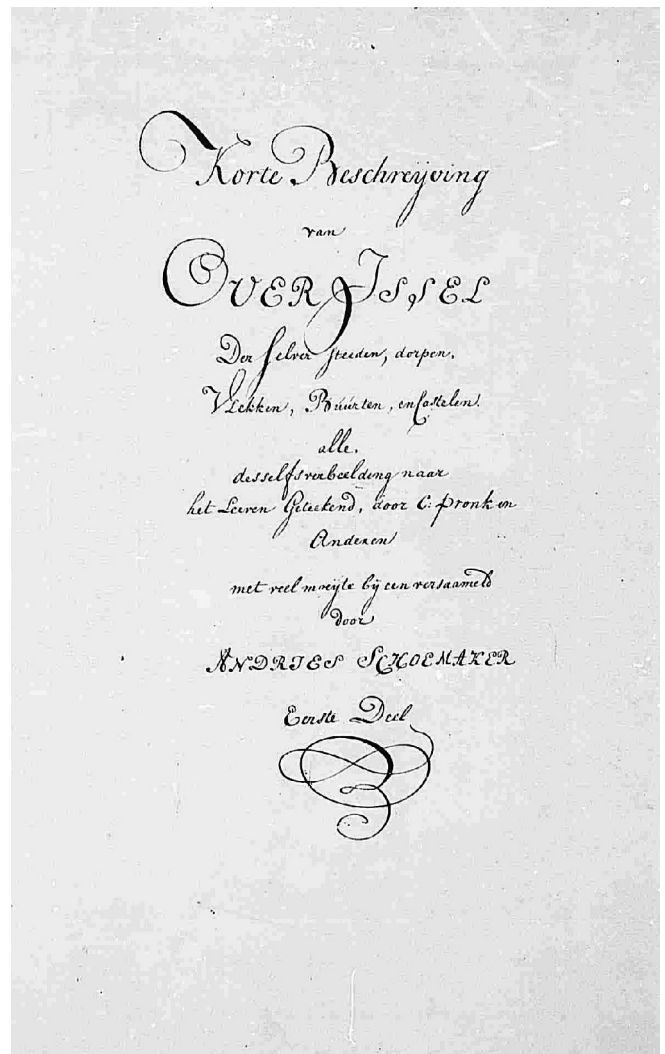 Korte Beschreijving
van
OVER IJSSEL
Der selver steeden, dorpen.
Vlekken, Buúrten, en Castelen.
alle.
desselfs verbeelding naar
het Leeven Geteekend, door C: pronk en
Anderen
met veel moeijte bij een versaameld
door
ANDRIES SCHOEMAKER
Eerste Deel